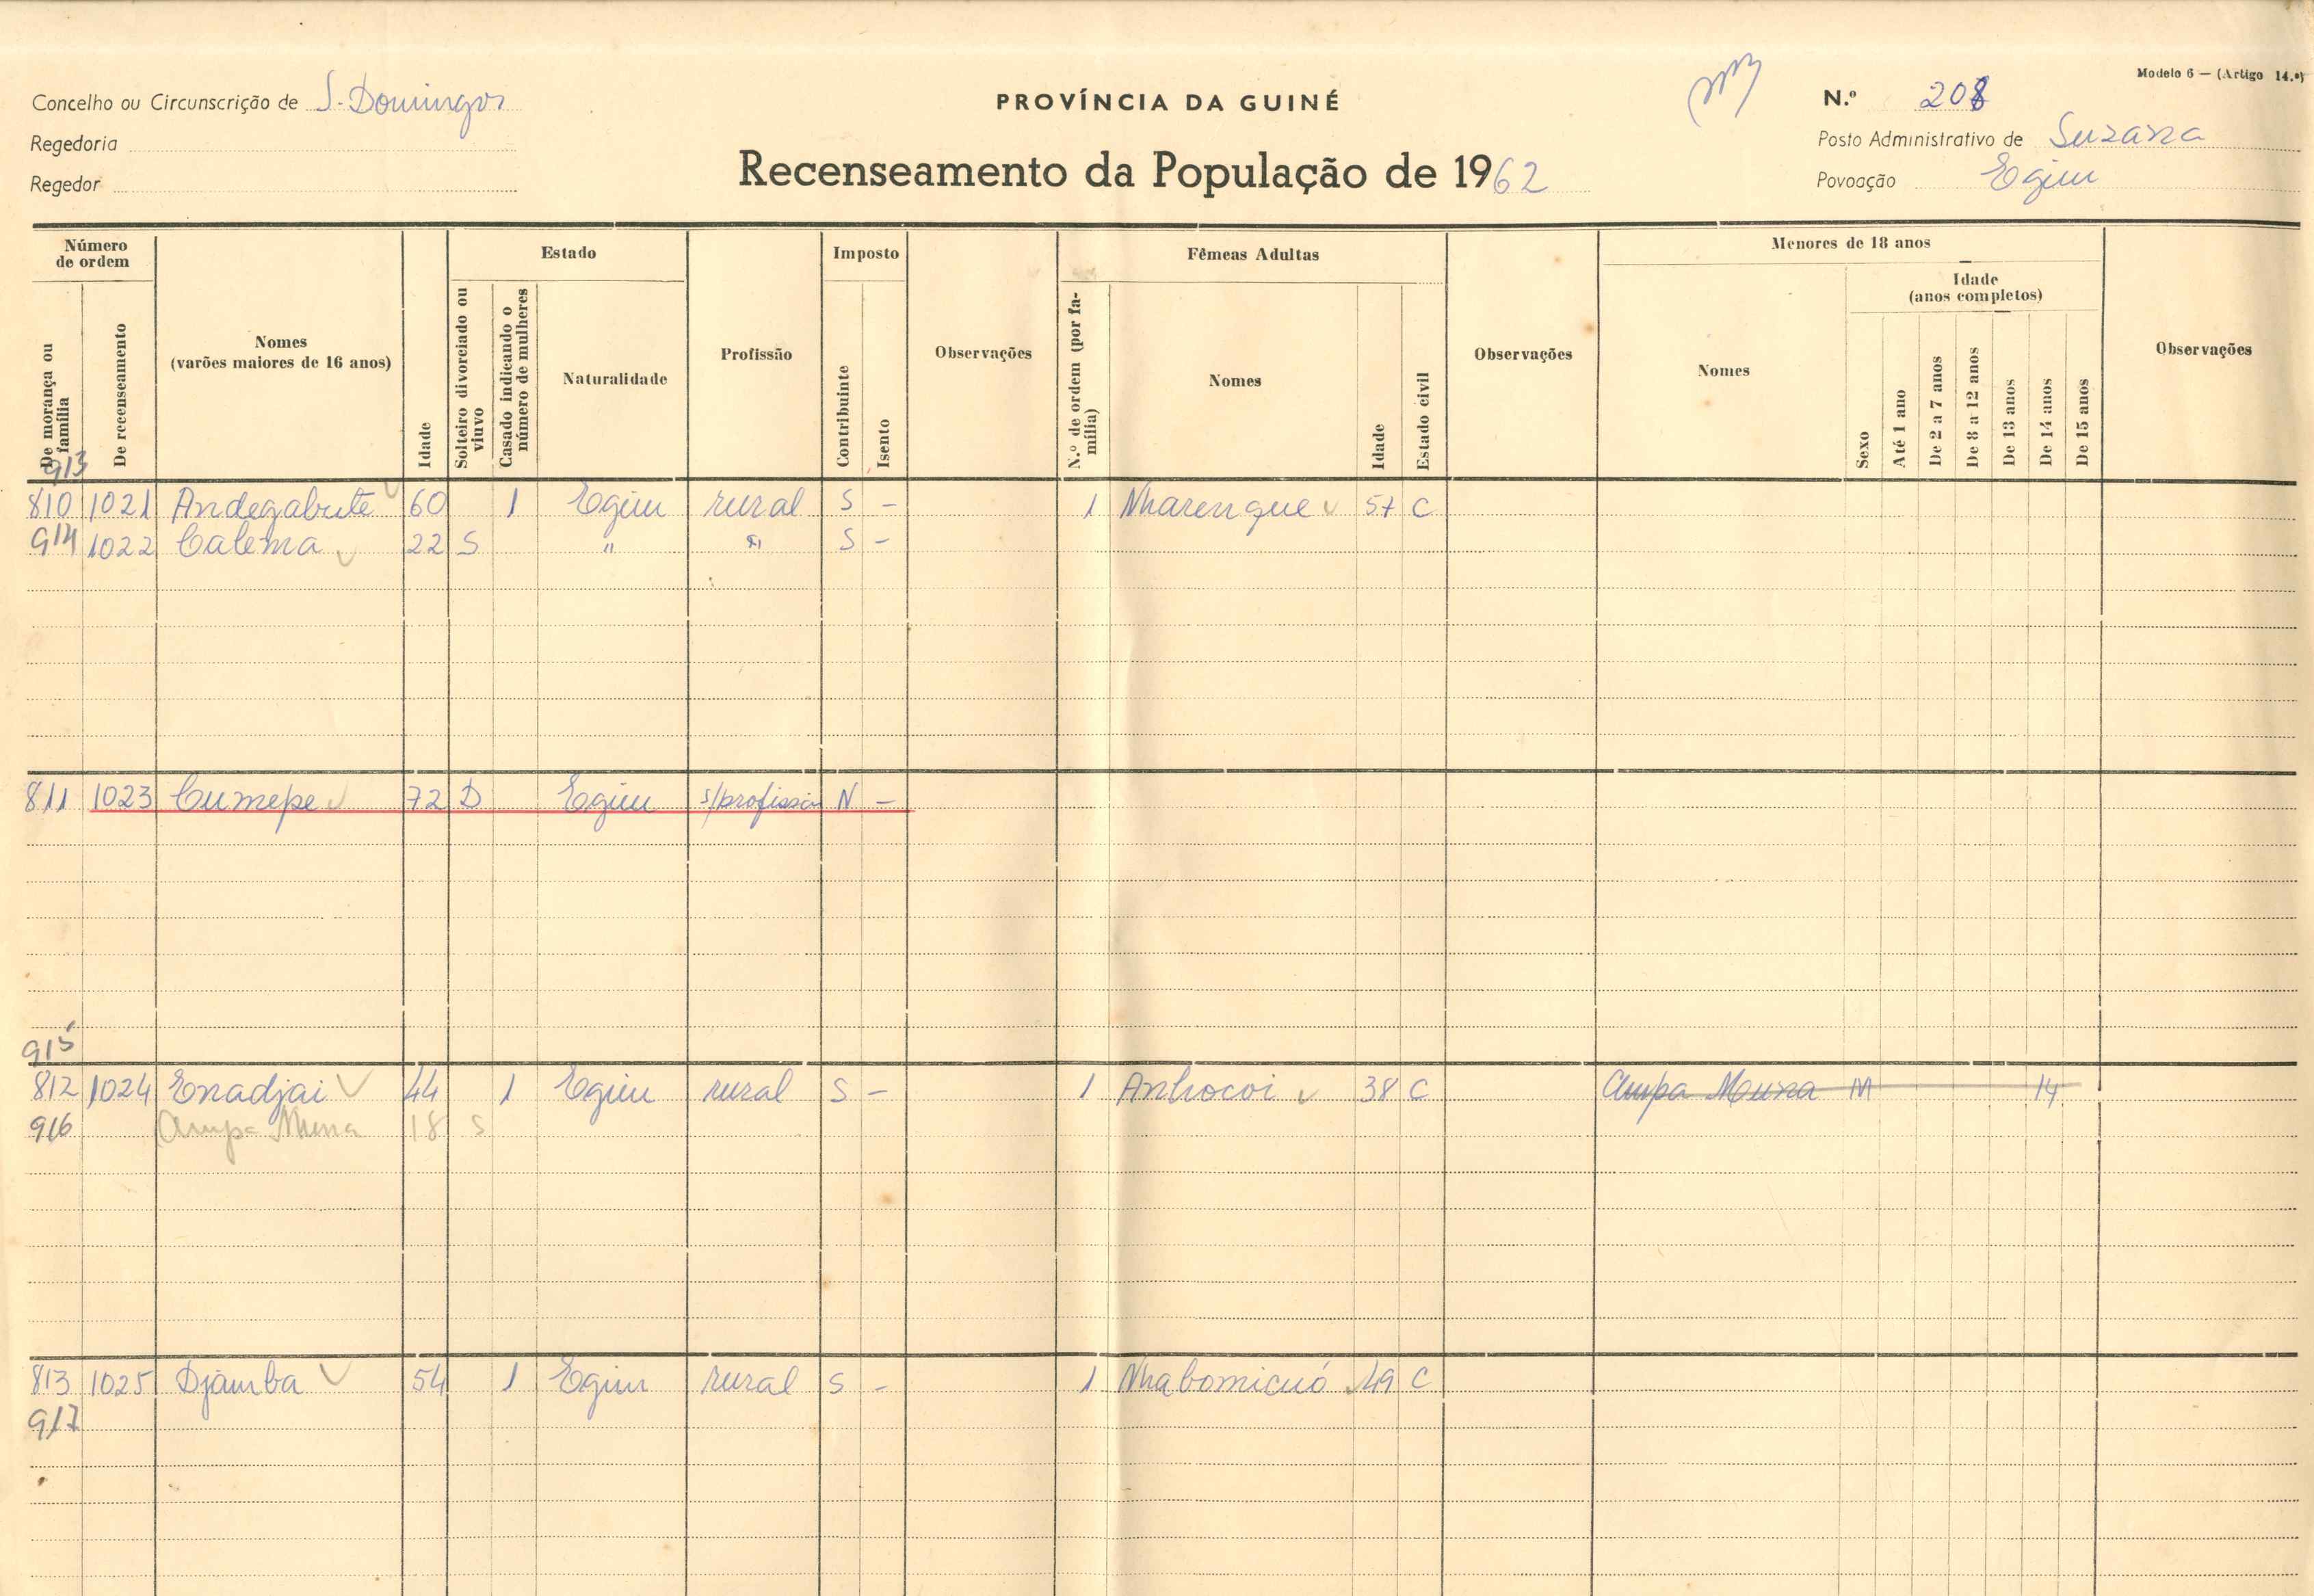 Modelo 6 — (Artigo 14.º)
Concelho ou Circunscrição de S. Domingos
PROVÍNCIA DA GUINÉ
N.º 208
Regedoria
Posto Administrativo de Suzana
Regedor
Recenseamento da População de 1962
Povoação Egim
Número de ordem
De morança ou família
De recenseamento
Nomes
(varões maiores de 16 anos)
Idade
Estado
Solteiro divorciado ou viuvo
Casado indicando o número de mulheres
Naturalidade
Profissão
Imposto
Contribuinte
Isento
Observações
Fêmeas Adultas
N.º de ordem (por família)
Nomes
Idade
Estado civil
Observações
Menores de 18 anos
Nomes
Sexo
Idade
(anos completos)
Até 1 ano
De 2 a 7 anos
De 8 a 12 anos
De 13 anos
De 14 anos
De 15 anos
Observações
913
810 1021 Andegabute 60 1 Egim rural S - 1 Nharenque 57 C
914 1022 Calema 22 S " " S -
811 1023 Cumepe 72 D Egim s/profissão N -
915
812 1024 Enadjai 44 1 Egim rural S - 1 Anhocoi 38 C Ampa Muna M 14
916 Ampa Muna 18 S
813 1025 Djamba 54 1 Egim rural S - 1 Nhabomicuó 49 C
917